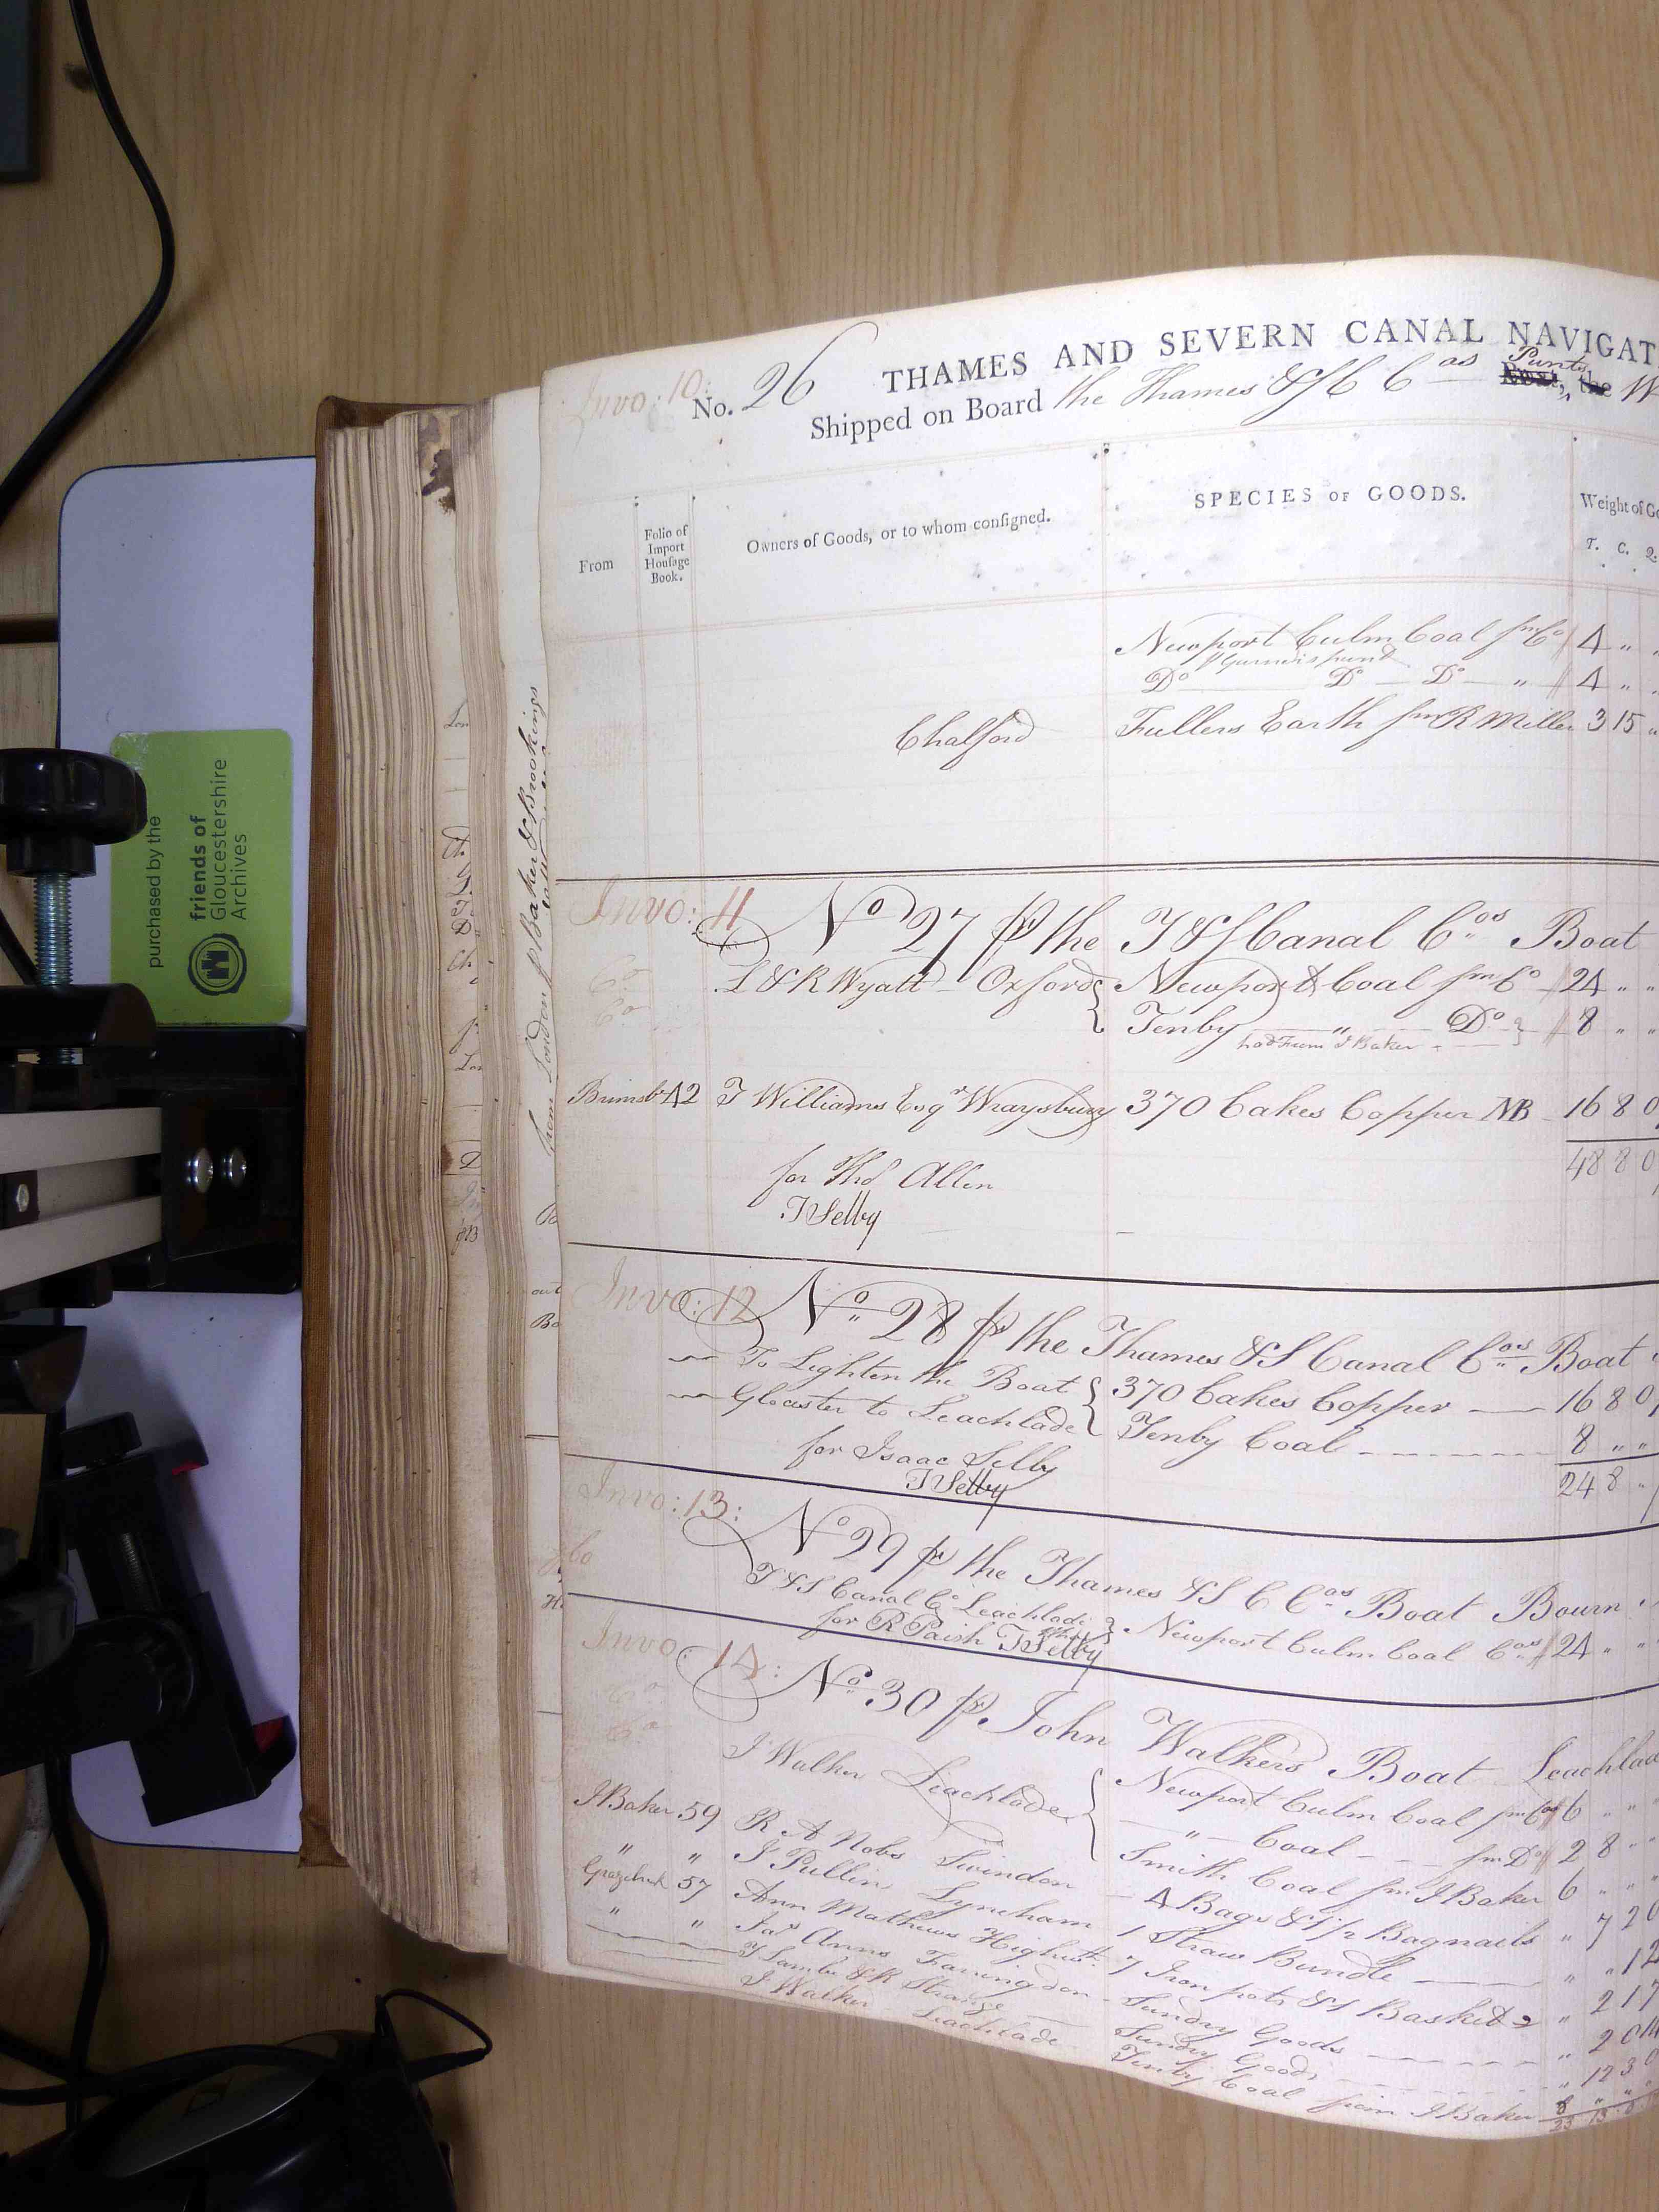 Invo: 10: No. 26 THAMES AND SEVERN CANAL NAVIGAT
Shipped on Board the Thames & S C Cos Punts W
From
Folio of Import Housage Book.
Owners of Goods, or to whom consigned.
SPECIES OF GOODS.
Weight of Go
T. C. Q.
Newport Culm Coal fm Co 4 " "
p Gurneis punt
Do Do Do " 4 " "
Chalford Fullers Earth fm R Miller 3 15 "
Invo: 11 No 27 p the T & S Canal Cos Boat
Co L & R Wyatt Oxford { Newport Coal fm Co 24 " "
Co Tenby " Do 8 " "
had from J Baker
Brimsb 42 T Williams Esqr Wraysbury 370 Cakes Copper NB 16 8 0
48 8 0
for Thos Allen
T Selby
Invo: 12 No 28 p the Thames & S Canal Cos Boat
To Lighten the Boat { 370 Cakes Copper 16 8 0
Glocester to Leachlade { Tenby Coal 8 " "
24 8 "
for Isaac Selby
T Selby
Invo: 13: No 29 p the Thames & S C Cos Boat Bourn
T & S Canal Co Leachlade } Newport Culm Coal Cos 24 " "
for R Paish T Selby
Invo: 14: No 30 p John Walkers Boat Leachlad
Co J Walker Leachlade { Newport Culm Coal fm Co 6 " "
Co " Coal fm Do 2 8 "
Smith Coal fm J Baker 6 " "
J Baker 59 R A Nobs Swindon 4 Bags & 1 p Bagnails " 7 20
" " J Pullin Lyneham 1 Straw Bundle " " 12
57 Ann Mathews Highth 7 Iron pots & 1 Basket " 2 17
" " Jas Anns Faringdon Sundry Goods " 2 0 14
T Lamb & R Strange Sundry Goods " 12 3 0
J Walker Leachlade Tenby Coal from J Baker 8 " "
23 13
from London p Baker & Brookings
purchased by the
friends of
Gloucestershire
Archives